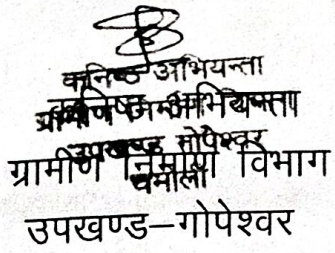 कनिष्ठ अभियन्ता
कनिष्ठ अभियन्ता
उपखण्ड गोपेश्वर
ग्रामीण निर्माण विभाग
चमोली
उपखण्ड–गोपेश्वर